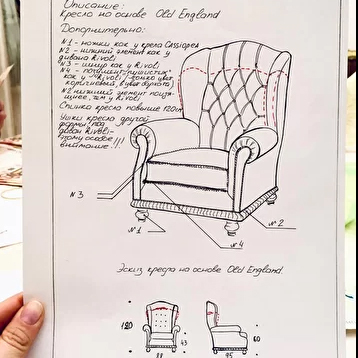 Описание:
Кресло на основе Old England
Дополнительно:
N1 - ножки как у кресла Cassiopea
N2 - нижний элемент как у
дивана Rivoli
N3 - шнур как у Rivoli
N4 -
как у Rivoli, только цвет
коричневый, в цвет
N2 нижний элемент
, чем у Rivoli
Спинка кресла повыше 120см
Ушки кресла другой
формы! под
диван Rivoli-
этому особое
внимание!!!
N3
N1
N2
N4
Эскиз кресла на основе Old England.
120
43
88
60
95